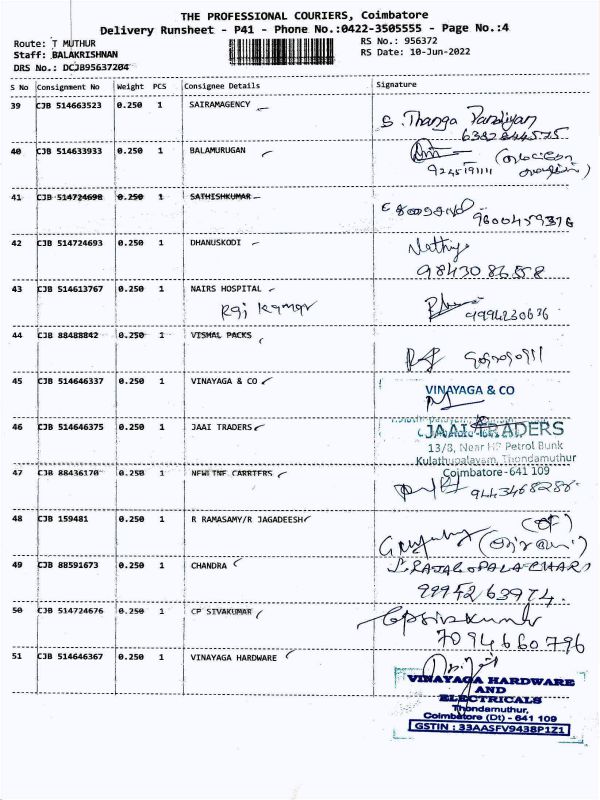 THE PROFESSIONAL COURIERS, Coimbatore
Delivery Runsheet - P41 - Phone No.:0422-3505555 - Page No.:4
Route: T MUTHUR
RS No.: 956372
Staff: BALAKRISHNAN
RS Date: 10-Jun-2022
DRS No.: DCJB95637204
S No Consignment No Weight PCS Consignee Details Signature
39 CJB 514663523 0.250 1 SAIRAMAGENCY
S. Thanga Pandiyan
6382844575
40 CJB 514633933 0.250 1 BALAMURUGAN
9245191111
41 CJB 514724698 0.250 1 SATHISHKUMAR
9600459376
42 CJB 514724693 0.250 1 DHANUSKODI
Nathiya
9843086558
43 CJB 514613767 0.250 1 NAIRS HOSPITAL
Raj Kumar
9994230676
44 CJB 88488842 0.250 1 VISMAL PACKS
45 CJB 514646337 0.250 1 VINAYAGA & CO
VINAYAGA & CO
46 CJB 514646375 0.250 1 JAAI TRADERS
JAAI TRADERS
13/8, Near HP Petrol Bunk
Kulathupalayam, Thondamuthur
Coimbatore - 641 109
47 CJB 88436170 0.250 1 NEWLINE CARRIERS
9443468286
48 CJB 159481 0.250 1 R RAMASAMY/R JAGADEESH
49 CJB 88591673 0.250 1 CHANDRA
S. RAJAGOPALACHARI
9994263974
50 CJB 514724676 0.250 1 CP SIVAKUMAR
CPSivakumar
7094660796
51 CJB 514646367 0.250 1 VINAYAGA HARDWARE
VINAYAGA HARDWARE
AND
ELECTRICALS
Thondamuthur,
Coimbatore (Dt) - 641 109
GSTIN : 33AASFV9438P1Z1